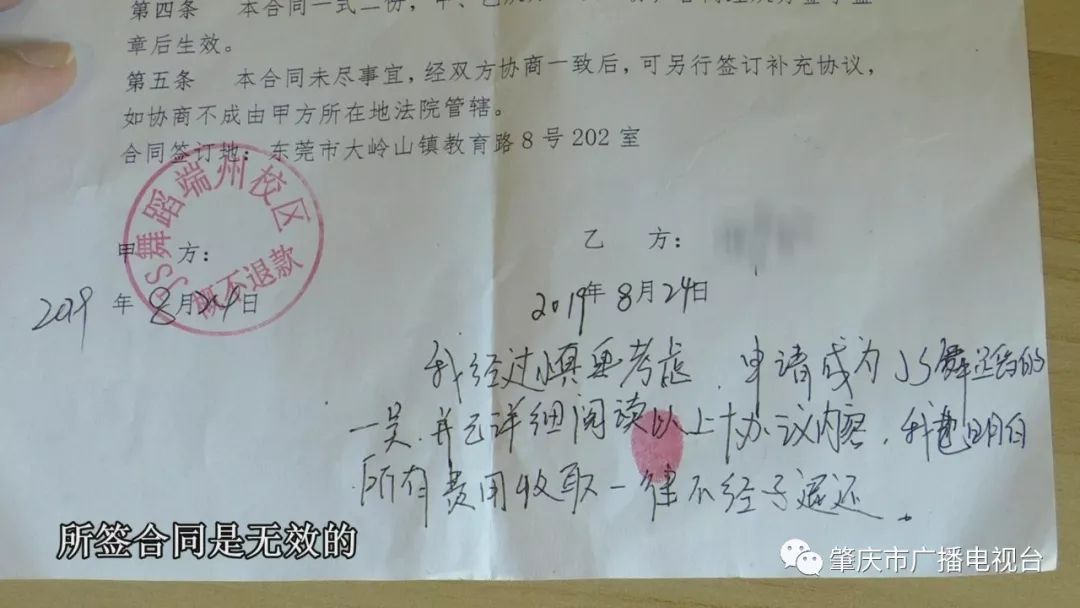 第四条 本合同一式二份，甲、乙
章后生效。
第五条 本合同未尽事宜，经双方协商一致后，可另行签订补充协议，
如协商不成由甲方所在地法院管辖。
合同签订地：东莞市大岭山镇教育路8号202室
JS舞蹈端州校区
概不退款
甲 方：
乙 方：
2019年8月24日
2019年8月24日
我经过慎重考虑，申请成为JS舞蹈的
一员，并已详细阅读以上协议内容，我明白
所有费用收取一律不经予退还。
所签合同是无效的
肇庆市广播电视台